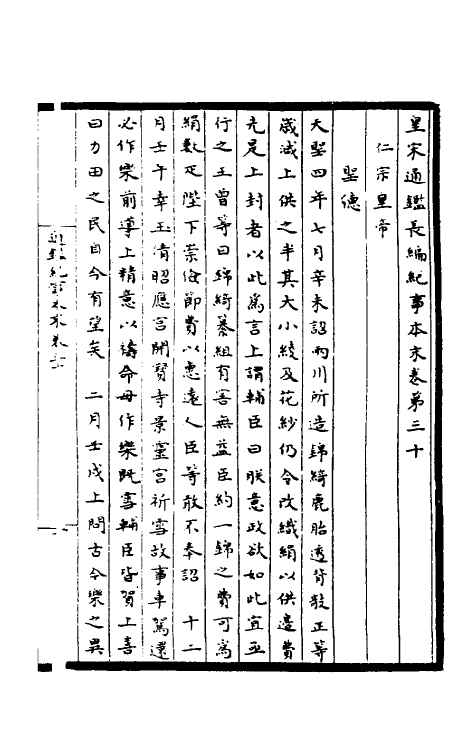 皇宋通鑑長編紀事本末卷第三十
仁宗皇帝
聖德
天聖四年七月辛未詔兩川所造錦綺鹿胎透背欹正等
歲減上供之半其大小綾及花紗仍令改織絹以供邉費
先是上封者以此爲言上謂輔臣曰朕意政欲如此宜亟
行之王曾等曰錦綺纂組有害無益臣約一錦之費可爲
絹數疋陛下崇儉節費以惠遠人臣等敢不奉詔 十二
月壬午幸玉清昭應宮開寳寺景靈宮祈雪故事車駕還
必作樂前導上精意以禱命毋作樂旣雪輔臣皆賀上喜
曰力田之民自今有望矣 二月壬戌上問古今樂之異
通鑑紀事本末卷三十